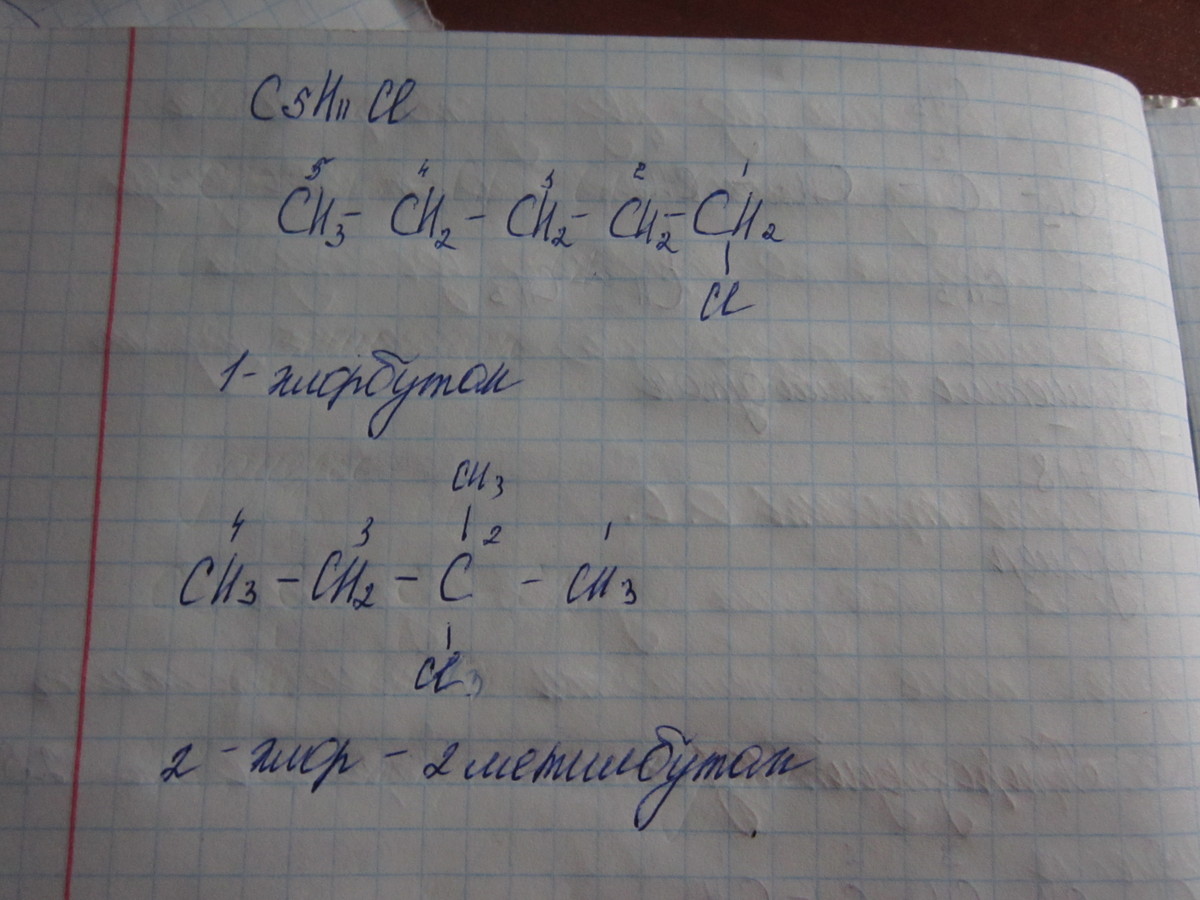 C5H11Cl
5 4 3 2 1
CH3 - CH2 - CH2 - CH2 - CH2
Cl
1-хлорбутан
CH3
4 3 2 1
CH3 - CH2 - C - CH3
Cl
2 - хлор - 2 метилбутан